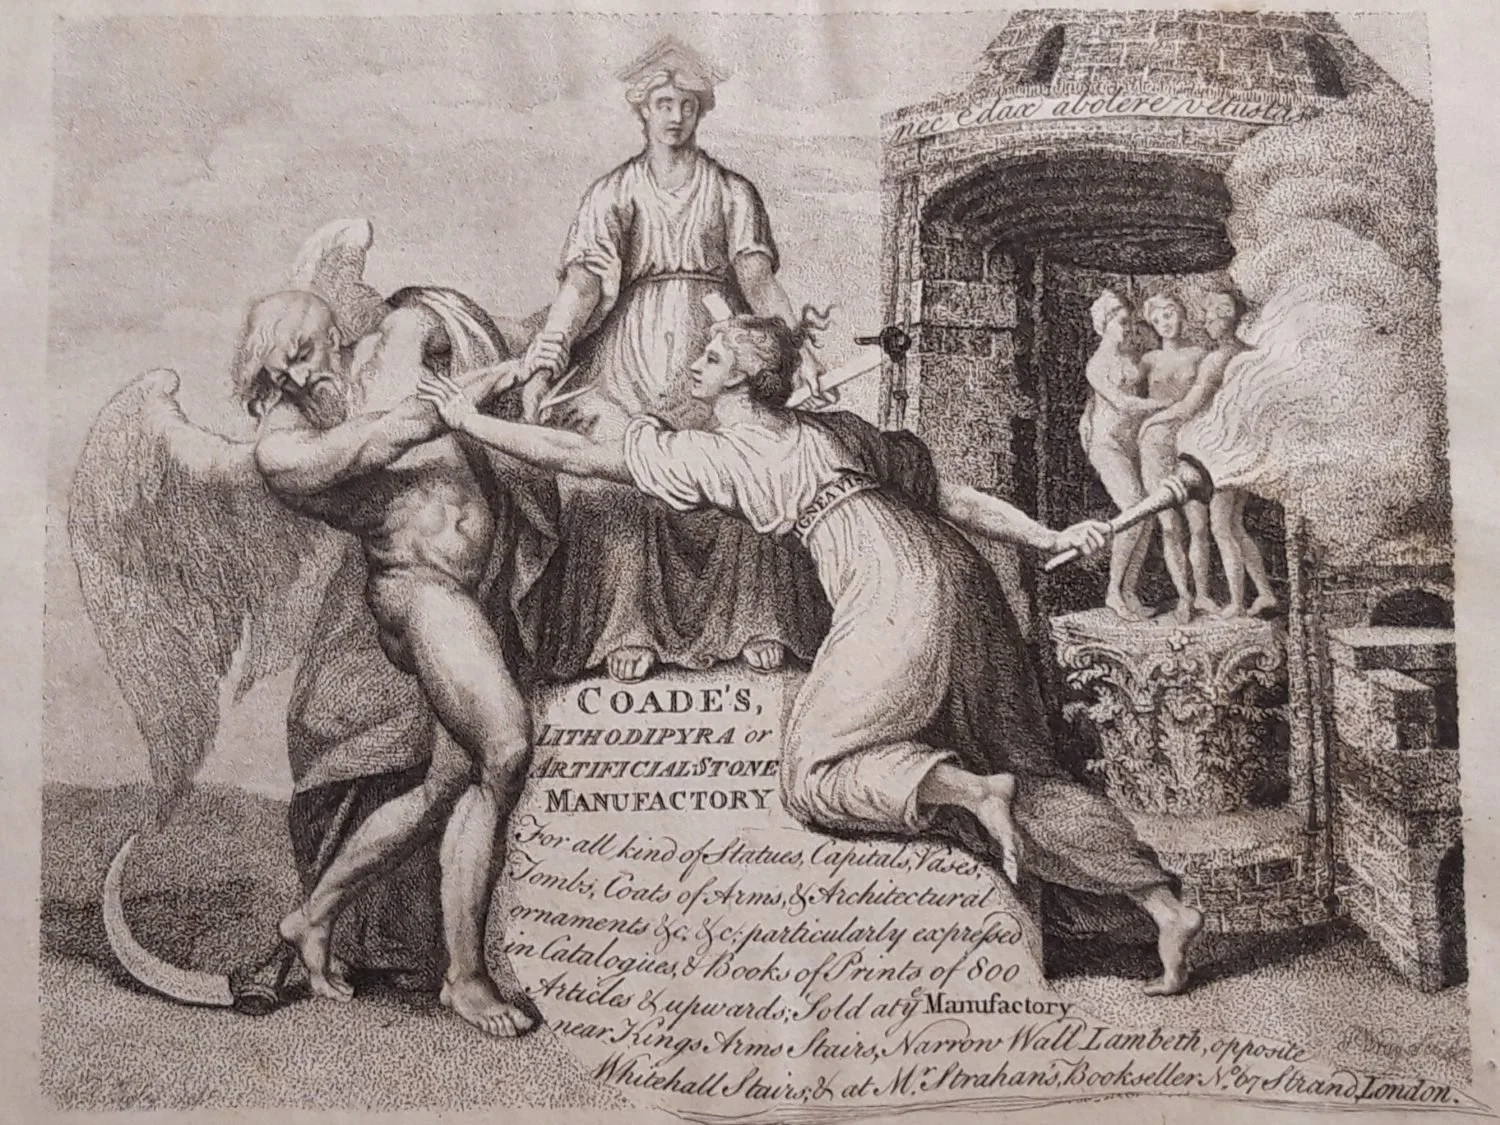 nec edax abolere vetustas
IGNEA VIS
COADE'S,
LITHODIPYRA or
ARTIFICIAL STONE
MANUFACTORY
For all kind of Statues, Capitals, Vases,
Tombs, Coats of Arms, & Architectural
ornaments &c. &c; particularly expreſsed
in Catalogues, & Books of Prints of 800
Articles & upwards; Sold at yᵉ Manufactory
near Kings Arms Stairs, Narrow Wall Lambeth, opposite
Whitehall Stairs, & at Mʳ. Strahan's, Bookseller Nº. 67 Strand, London.